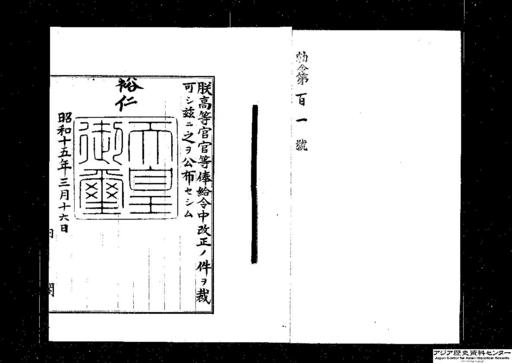 勅令第百一號
朕高等官官等俸給令中改正ノ件ヲ裁
可シ玆ニ之ヲ公布セシム
裕仁
天皇
御璽
昭和十五年三月十六日
内閣
アジア歴史資料センター
Japan Center for Asian Historical Records